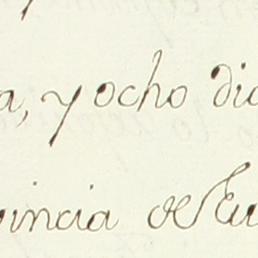 a, y ocho dia
vincia de Eu